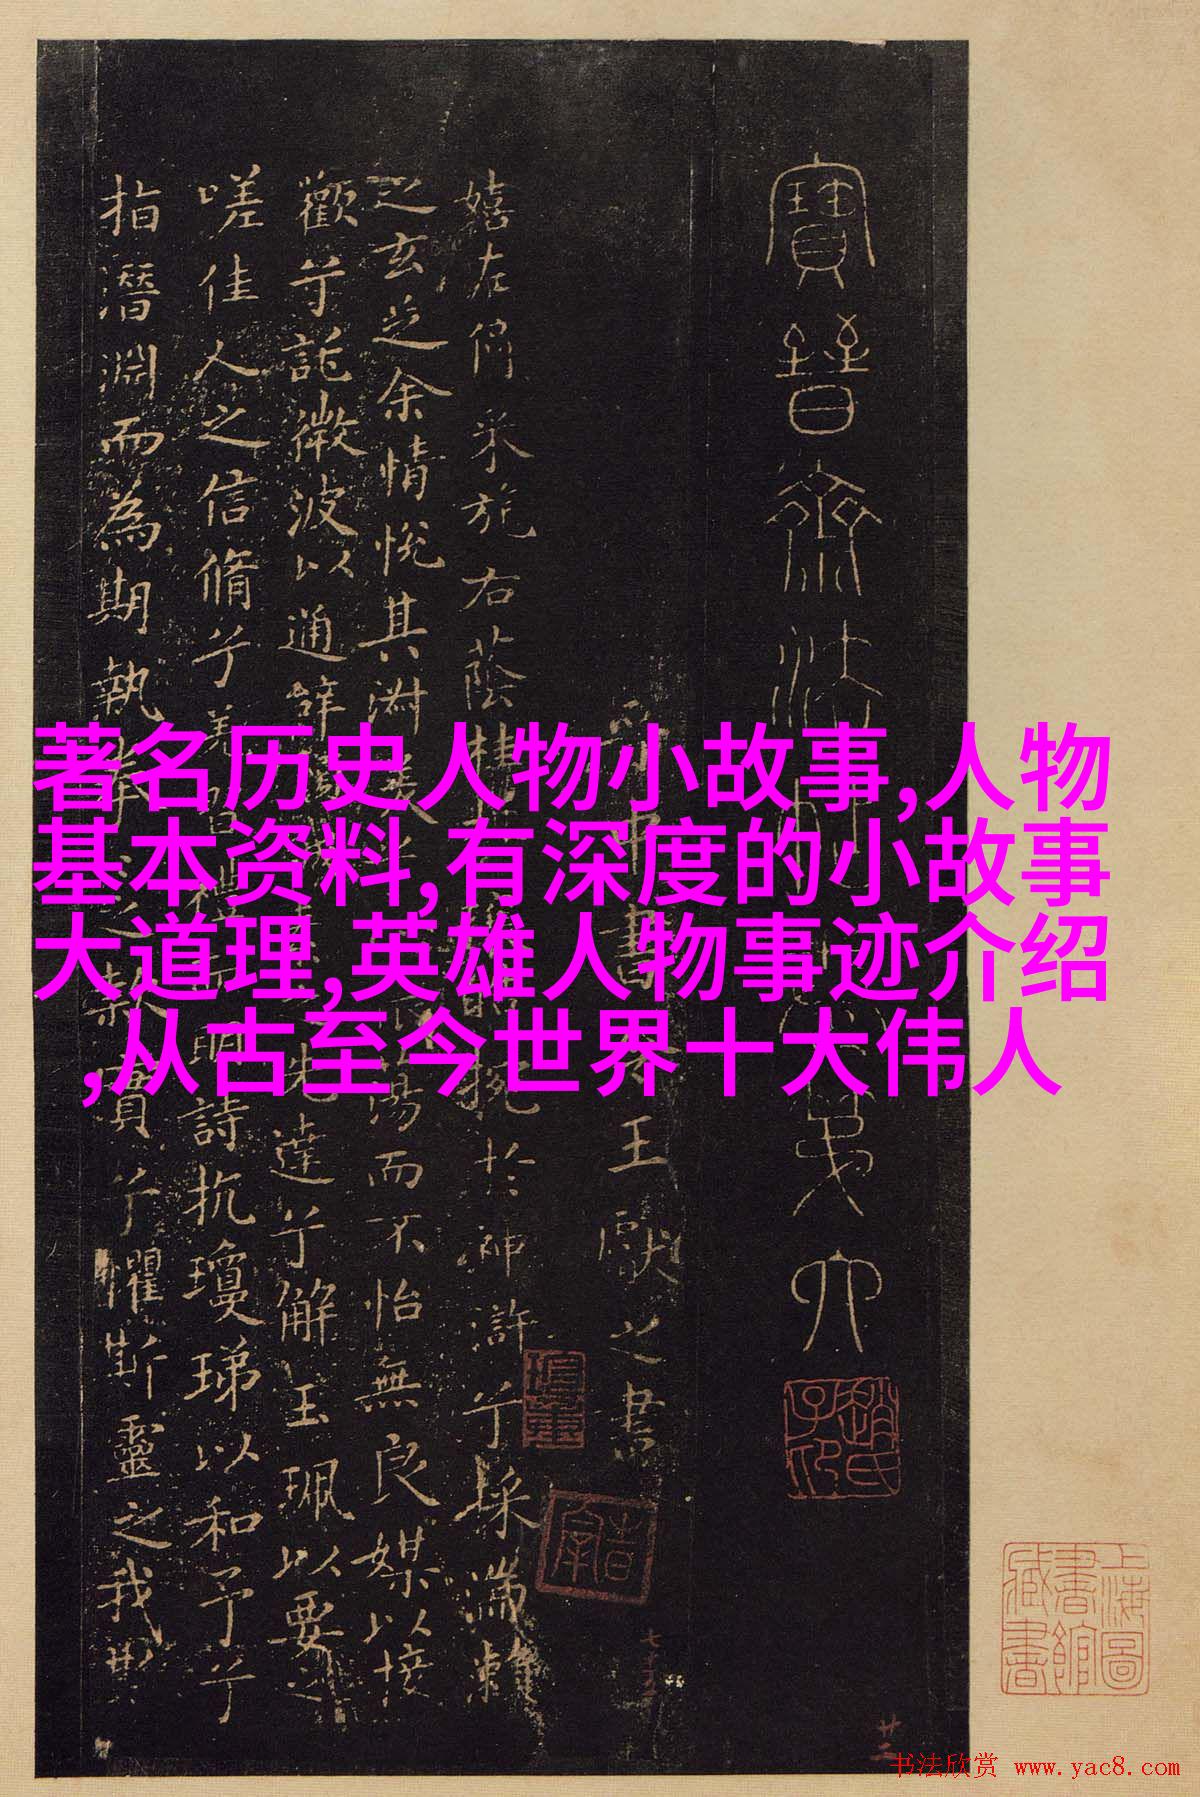 著名历史人物小故事,人物
基本资料,有深度的小故事
大道理,英雄人物事迹介绍
,从古至今世界十大伟人
寶晉齋法弟六
中書令王獻之書
嬉左倚采旄右蔭桂於神滸兮採湍
之玄芝余情悅其淑美蕩而不怡無良媒以接
歡兮託微波以通辭達兮解玉珮以要之
嗟佳人之信脩兮羌習禮明詩抗瓊珶以和予兮
指潛淵而為期執之款實兮懼斯靈之我欺
上海圖書館藏書
廿二
书法欣赏 www.yac8.com